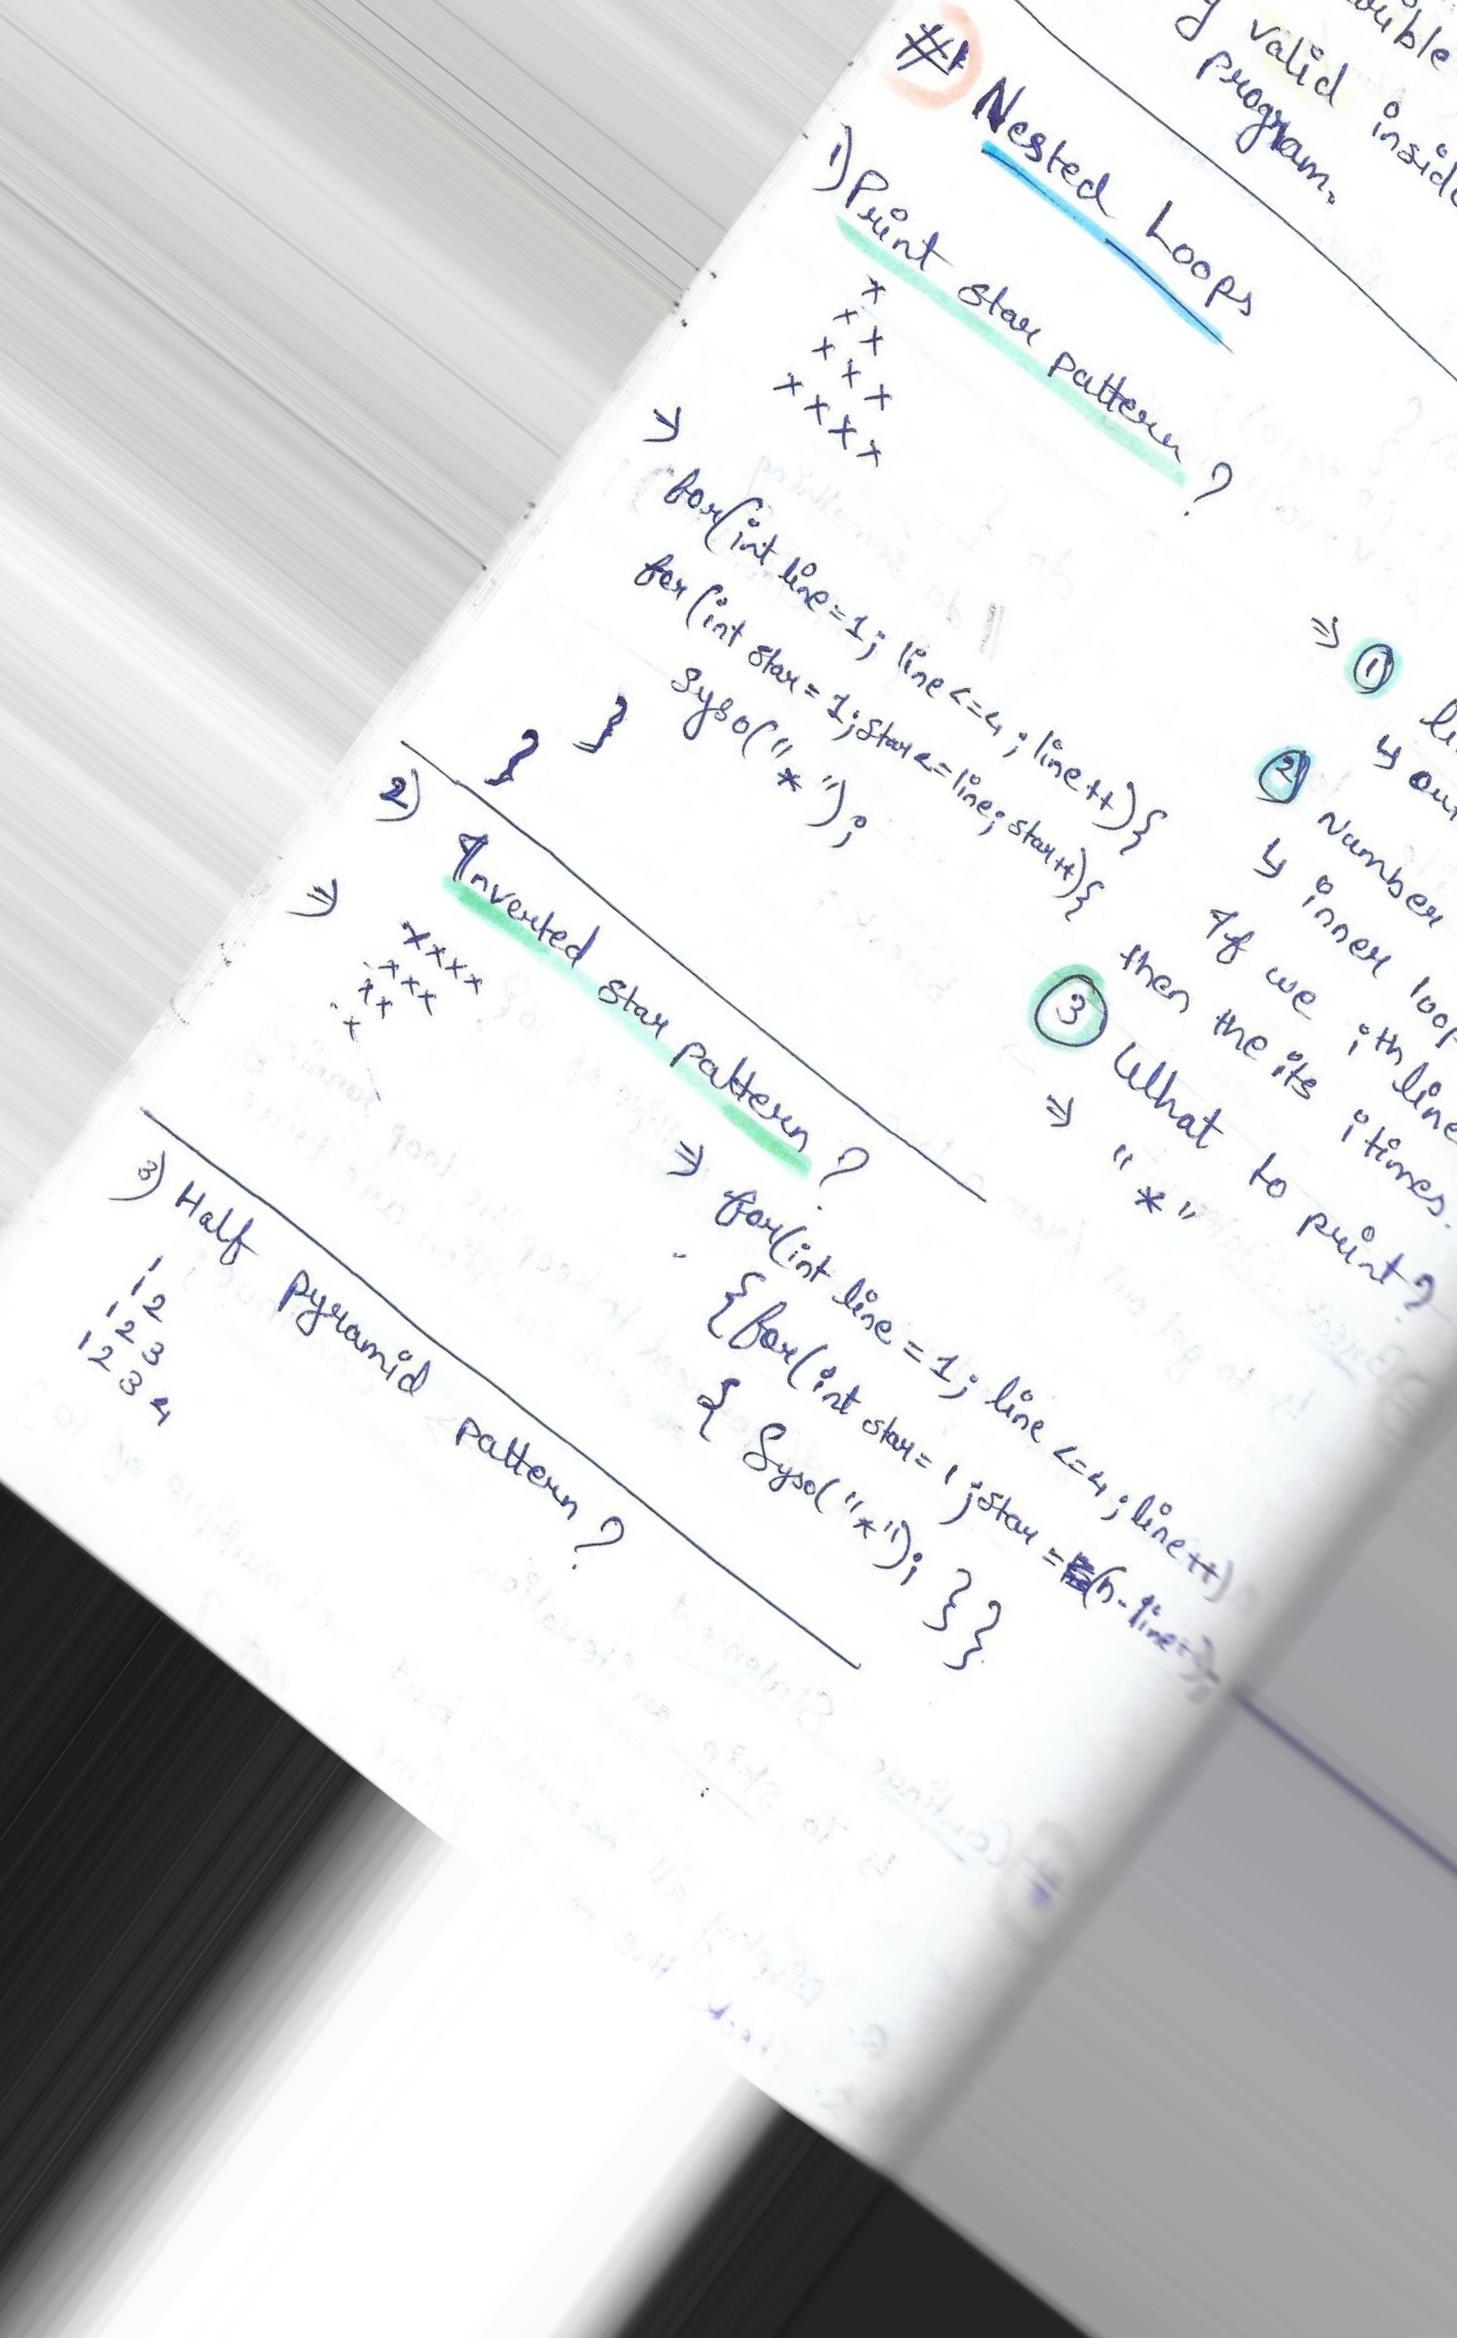 ouble
y valid inside
program.
# Nested Loops
1) Print star pattern?
*
* *
* * *
* * * *
⇒
for(int line=1; line<=4; line++){
for(int star=1; star<=line; star++){
Syso("*");
}
}
⇒ ① li
↳ out
② Number
↳ inner loop
If we ith line
then the its itimes.
③ What to print?
⇒ "*"
2) Inverted star pattern?
⇒
* * * *
* * *
* *
*
⇒ for(int line=1; line<=4; line++)
{for(int star=1; star=(n-line
{ Syso("*"); }}
3) Half pyramid pattern?
1
1 2
1 2 3
1 2 3 4